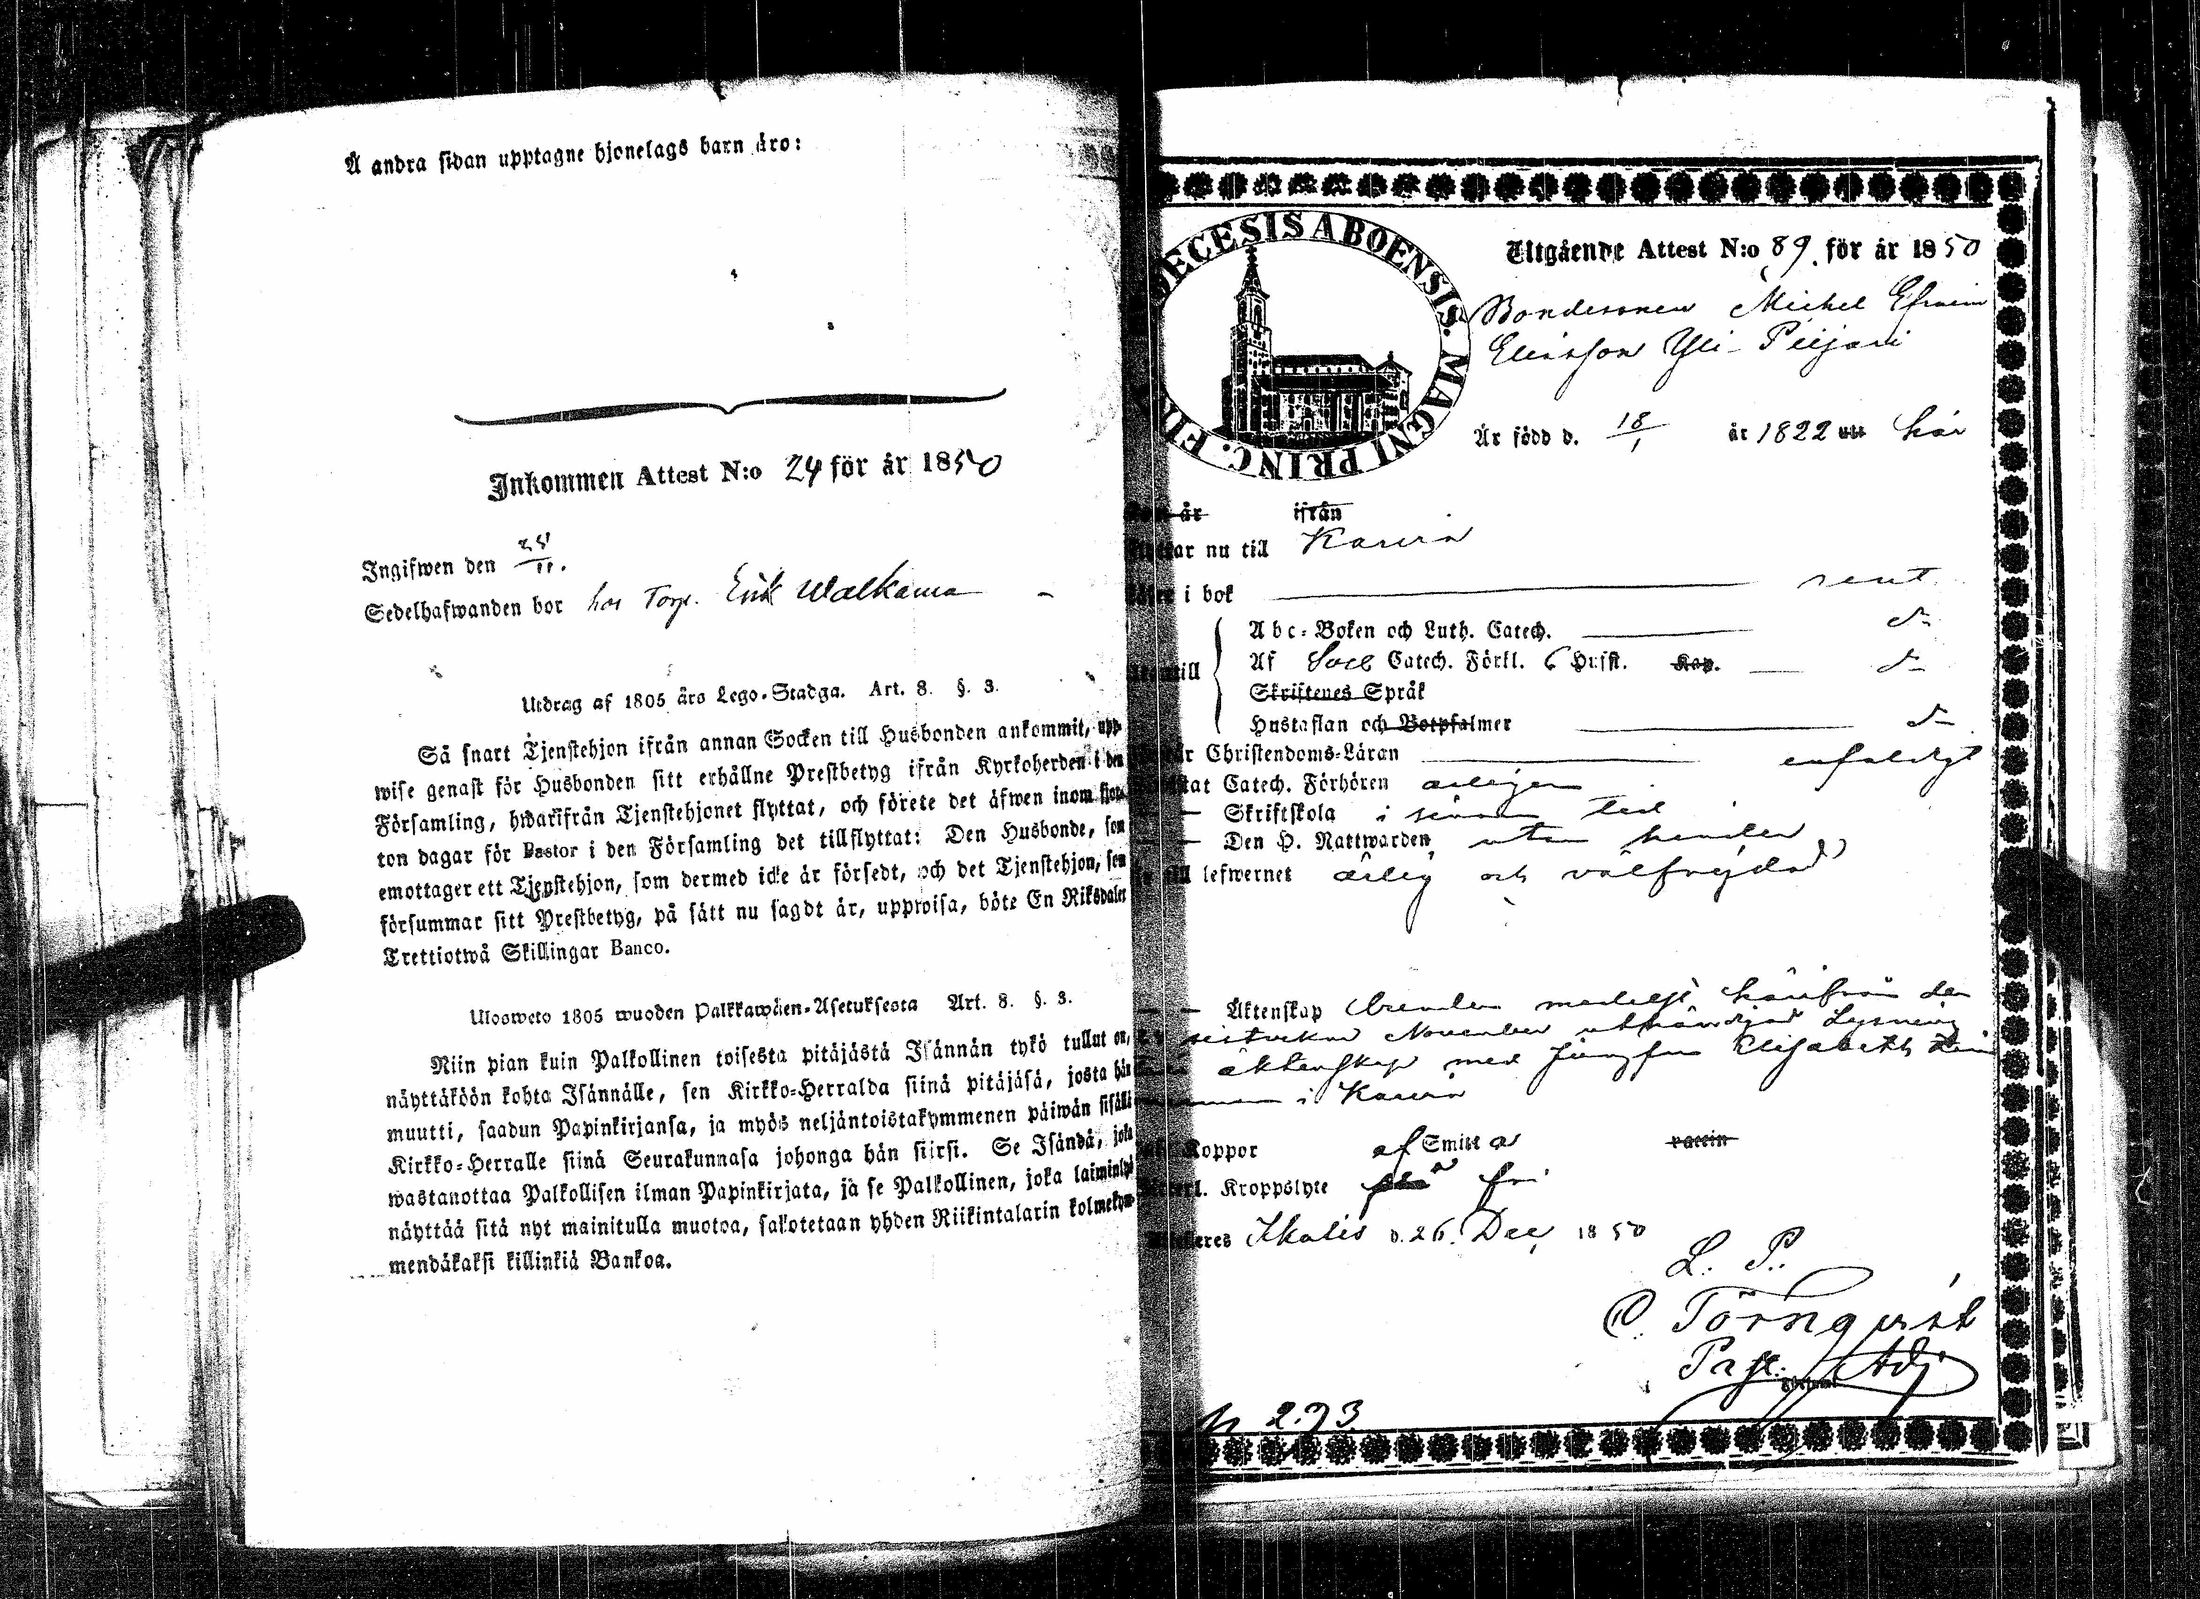 Å andra sidan upptagne hjonelags barn äro:
Inkommen Attest N:o 24 för år 1850
Ingifwen den 25/11.
Sedelhafwanden bor hos Torp. Erik Walkama
Utdrag af 1805 års Lego-Stadga. Art. 8. §. 3.
Så snart Tjenstehjon ifrån annan Socken till Husbonden ankommit, upp-
wise genast för Husbonden sitt erhållne Prestbetyg ifrån Kyrkoherden i den
Församling, hwarifrån Tjenstehjonet flyttat, och förete det äfwen inom fjor-
ton dagar för Pastor i den Församling det tillflyttat: Den Husbonde, som
emottager ett Tjenstehjon, som dermed icke är försedt, och det Tjenstehjon, som
försummar sitt Prestbetyg, på sätt nu sagdt är, uppwisa, böte En Riksdaler
Trettiotwå Skillingar Banco.
Ulosweto 1805 wuoden Palkkawäen-Asetuksesta Art. 8. §. 3.
Niin pian kuin Palkollinen toisesta pitäjästä Isännän tykö tullut on,
näyttäköön kohta Isännälle, sen Kirkko-Herralda siinä pitäjäsä, josta hän
muutti, saadun Papinkirjansa, ja myös neljäntoistakymmenen päiwän sisälli
Kirkko-Herralle siinä Seurakunnasa johonga hän siirsi. Se Isändä, joka
wastanottaa Palkollisen ilman Papinkirjata, ja se Palkollinen, joka laiminlyö
näyttää sitä nyt mainitulla muotoa, sakotetaan yhden Riikintalarin kolmekym-
mendäkaksi killinkiä Bankoa.
DECESIS ABOENSIS. MAGNI PRINC. FIN
Utgående Attest N:o 89. för år 1850
Bondesonen Michel Efraim
Eliasson Yli-Piijari
Är född d. 18/1 år 1822 utt här
år ifrån
nu till Karvia
i bok rent
Abc-Boken och Luth. Catech. do
Af Sveb Catech. Förkl. 6 Hufst. Kap. do
Skriftenes Språk
Hustaflan och Botpsalmer do
Christendoms-Läran enfaldigt
Catech. Förhören årligen
Skriftskola i sinom tid
Den H. Nattwarden utan hinder
till lefwernet ärlig och välfrejdad
Äktenskap medelst härifrån den
November Lysning
äktenskap med jungfru Elisabeth
i Karvia
Koppor af Smitt vaccin
Kroppslyte fri
Ikalis d. 26. Dec. 1850
L. P.
Törnqvist
Past. Adj
N 273